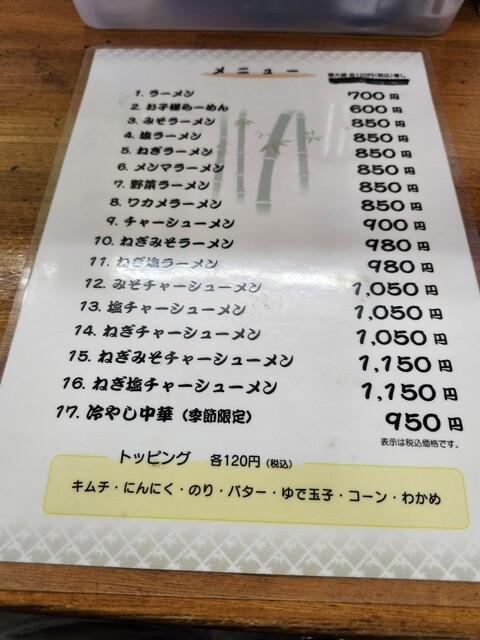 メニュー
各120円(税込)増し
1. ラーメン 700円
2. お子様らーめん 600円
3. みそラーメン 850円
4. 塩ラーメン 850円
5. ねぎラーメン 850円
6. メンマラーメン 850円
7. 野菜ラーメン 850円
8. ワカメラーメン 850円
9. チャーシューメン 900円
10. ねぎみそラーメン 980円
11. ねぎ塩ラーメン 980円
12. みそチャーシューメン 1,050円
13. 塩チャーシューメン 1,050円
14. ねぎチャーシューメン 1,050円
15. ねぎみそチャーシューメン 1,150円
16. ねぎ塩チャーシューメン 1,150円
17. 冷やし中華(季節限定) 950円
表示は税込価格です。
トッピング 各120円(税込)
キムチ・にんにく・のり・バター・ゆで玉子・コーン・わかめ